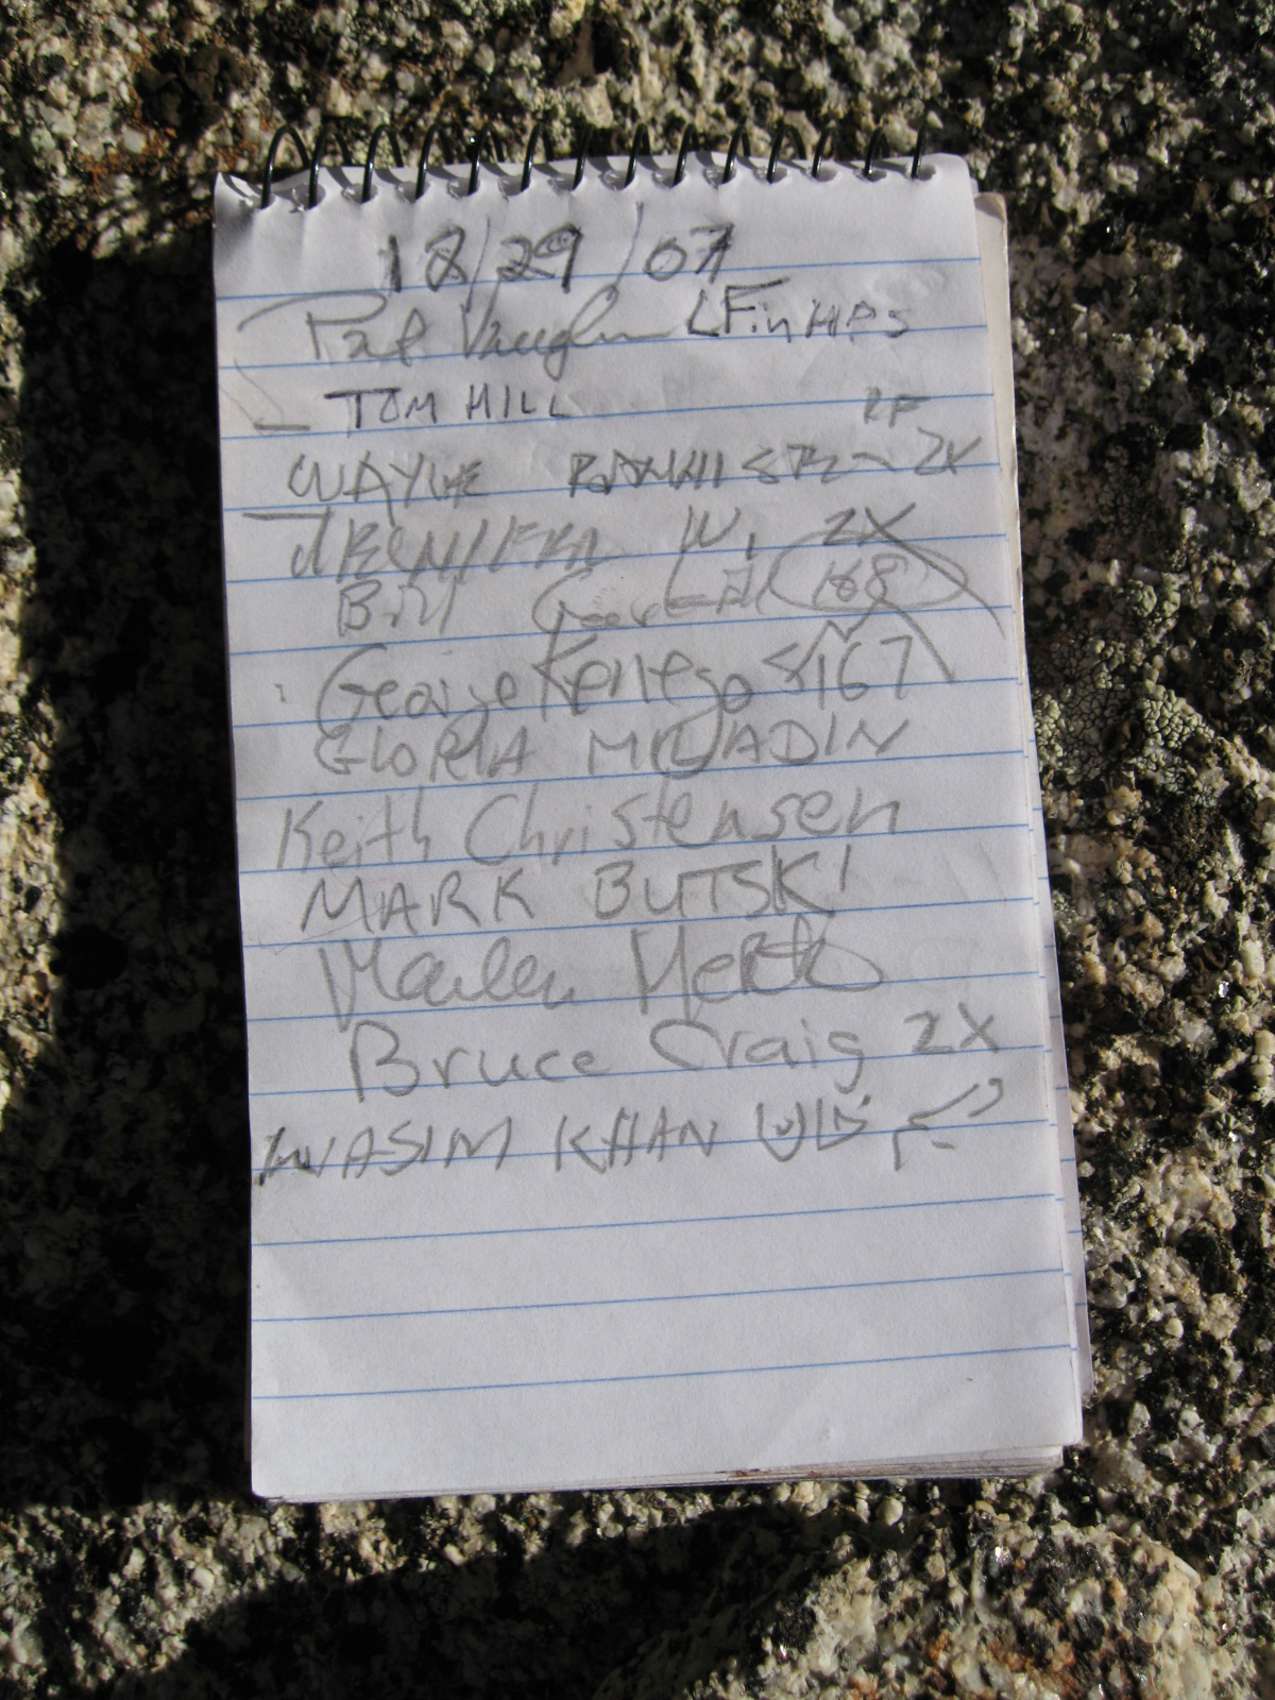 18/29/07
Pat Vaughn L Fin HPS
TOM HILL
RF
WAYNE BANNISTER 2X
JENNIFER W. 2X
Bill 168
George Kenegos 167
GLORIA MILADIN
Keith Christensen
MARK BUTSKI
Bruce Craig 2X
WASIM KHAN